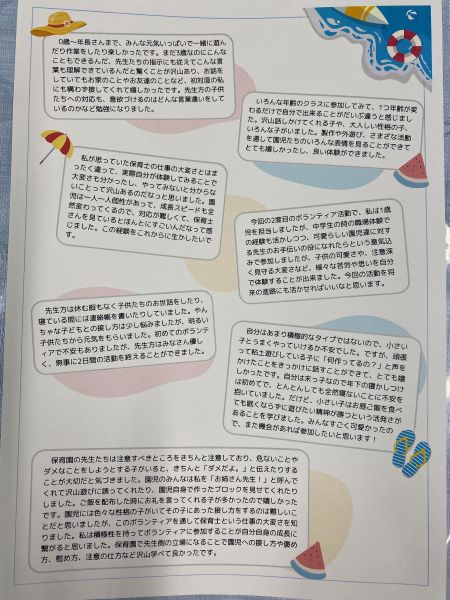 0歳～年長さんまで、みんな元気いっぱいで一緒に遊ん
だり作業をしたり楽しかったです。まだ3歳なのにこんな
こともできるんだ、先生たちの指示にも従えてこんな言
葉も理解できているんだと驚くことが沢山あり、お話を
していてもお家のことやお友達のことなど、初対面の私
にも構わず接してくれて嬉しかったです。先生方の子供
たちへの対応も、意欲づけるのはどんな言葉遣いをして
いるのかなど勉強になりました。
いろんな年齢のクラスに参加してみて、1つ年齢が変
わるだけで自分で出来ることがだいぶ違うと感じまし
た。沢山話しかけてくれる子や、大人しい性格の子、
いろんな子がいました。製作や外遊び、さまざな活動
を通して園児たちのいろんな表情を見ることができて
とても嬉しかったし、良い体験ができました。
私が思っていた保育士の仕事の大変さとはま
ったく違って、実際自分が体験してみることで
大変さも分かったし、やってみないと分からな
いことって沢山あるのだなっと思いました。園
児は一人一人個性があって、成長スピードも全
然変わってくるので、対応が難しくて、保育士
さんを見ているとほんとにすごいんだなって感
じました。この経験をこれからに生かしたいで
す。
今回の2度目のボランティア活動で、私は1歳
児を担当しましたが、中学生の時の職場体験で
の経験も活かしつつ、可愛らしい園児達に対す
る先生のお手伝いの役になれたらという意気込
みで参加しましたが、子供の可愛さや、注意深
く見守る大変さなど、様々な苦労や思いを自分
で体験することが出来ました。今回の活動を将
来の進路にも活かせればいいなと思います。
先生方は休む暇もなく子供たちのお世話をしたり、
寝ている間には連絡帳を書いたりしていました。やん
ちゃな子どもとの接し方は少し悩みましたが、明るい
子供たちから元気をもらいました。初めてのボランテ
ィアで不安もありましたが、先生方はみなさん優し
く、無事に2日間の活動を終えることができました。
自分はあまり積極的なタイプではないので、小さい
子とうまくやっていけるか不安でした。ですが、頑張
って粘土遊びしている子に「何作ってるの？」と声を
かけたことをきっかけに話すことができて、とても嬉
しかったです。自分は末っ子なので年下の寝かしつけ
は初めてで、とんとんしても全然寝ないことに不安を
抱いていました。だけど、小さい子はお昼ご飯を食べ
ても眠くならずに遊びたい精神が勝つという活発さが
あることを学びました。みんなすごく可愛かったの
で、また機会があれば参加したいと思います！
保育園の先生たちは注意すべきところをきちんと注意しており、危ないことや
ダメなことをしようとする子がいると、きちんと「ダメだよ。」と伝えたりする
ことが大切だと気づきました。園児のみんなは私を「お姉さん先生！」と呼んで
くれて沢山遊びに誘ってくれたり、園児自身で作ったブロックを見せてくれたり
しました。ご飯を配布した時にお礼を言ってくれる子が多かったので嬉しかった
です。園児には色々な性格の子がいてその子にあった接し方をするのは難しいこ
とだと思いましたが、このボランティアを通して保育士という仕事の大変さを知
りました。私は積極性を持ってボランティアに参加することが自分自身の成長に
繋がると思いました。保育園で先生側の立場になることで園児への接し方や褒め
方、慰め方、注意の仕方など沢山学べて良かったです。